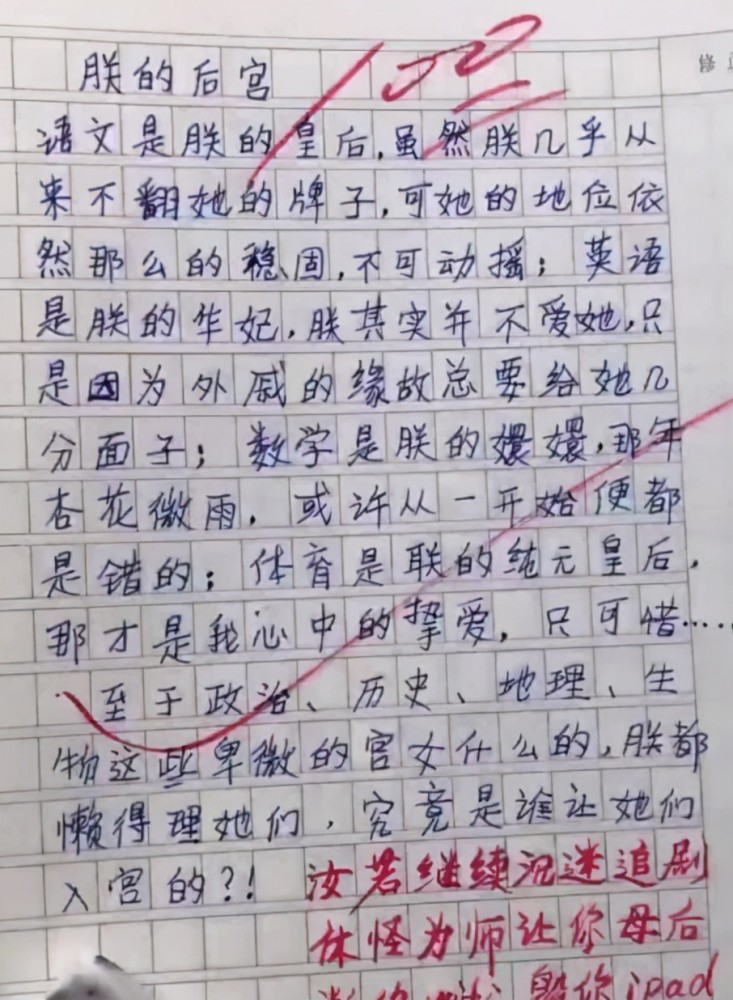 100
修
朕的后宫
语文是朕的皇后,虽然朕几乎从
来不翻她的牌子,可她的地位依
然那么的稳固,不可动摇;英语
是朕的华妃,朕其实并不爱她,只
是因为外戚的缘故总要给她几
分面子;数学是朕的嬛嬛,那年
杏花微雨,或许从一开始便都
是错的;体育是联的纯元皇后,
那才是我心中的挚爱,只可惜……
至于政治、历史、地理、生
物这些卑微的宫女什么的,朕都
懒得理她们,究竟是谁让她们
入宫的?!
汝若继续沉迷追剧
休怪为师让你母后
毁你ipad